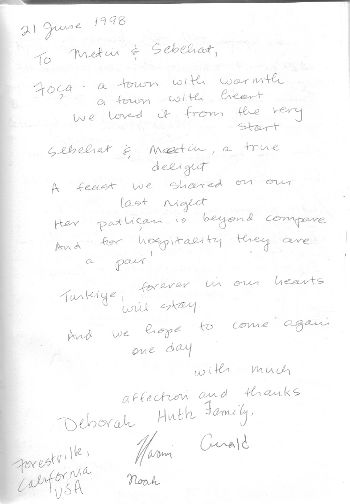 21 June 1998
To Metin & Sebehat,
Foça - a town with warmth
a town with heart
we loved it from the very
start
Sebehat & Metin, a true
delight
A feast we shared on our
last night
Her patliçan is beyond compare
And for hospitality they are
a pair!
Turkiye, forever in our hearts
will stay
And we hope to come again
one day
with much
affection and thanks
Deborah Huth Family.
Naomi Gerald
Noah
Forestville,
California
USA